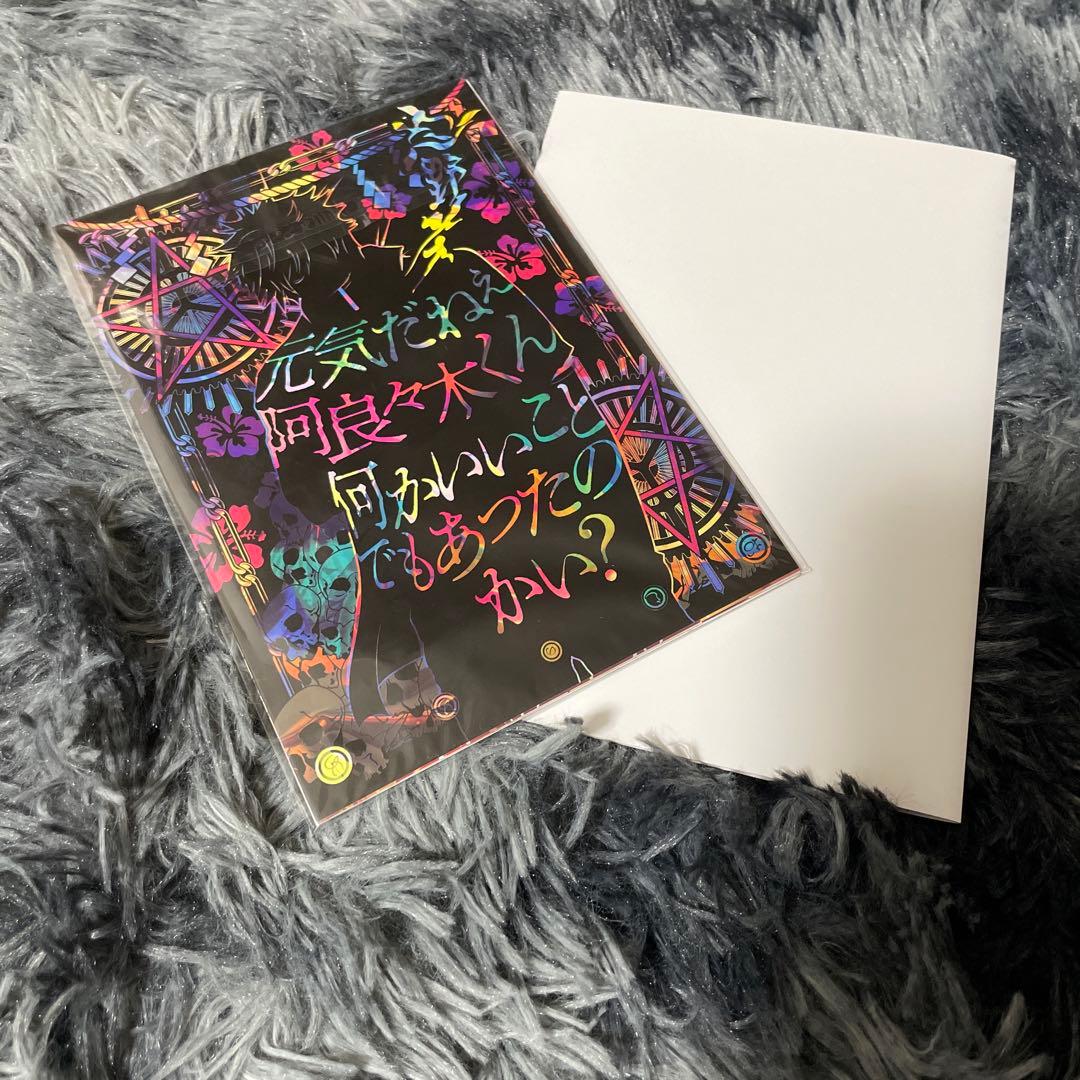 忍野メメ
元気だねぇ
阿良々木くん
何かいいこと
でもあったの
かい?